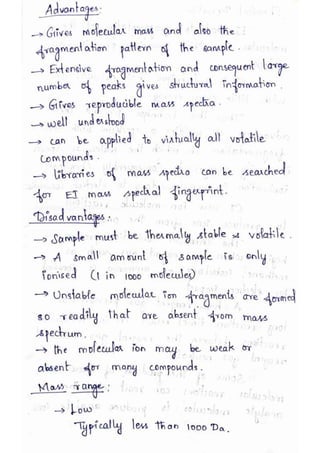 Advantages:-
→ Gives molecular mass and also the
fragmentation pattern of the sample.
→ Extensive fragmentation and consequent large
number of peaks gives structural information.
→ Gives reproducible mass spectra.
→ well understood
→ can be applied to virtually all volatile
compounds.
→ libraries of mass spectra can be searched
for EI mass spectral fingerprint.
Disadvantages:
→ Sample must be thermally stable & volatile.
→ A small amount of sample is only
ionised (1 in 1000 molecules)
→ Unstable molecular ion fragments are formed
so readily that are absent from mass
spectrum.
→ the molecular ion may be weak or
absent for many compounds.
Mass range:
→ Low
Typically less than 1000 Da.